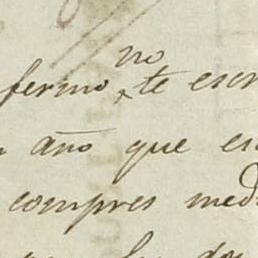 no
fermo te escr
año que es
compres med